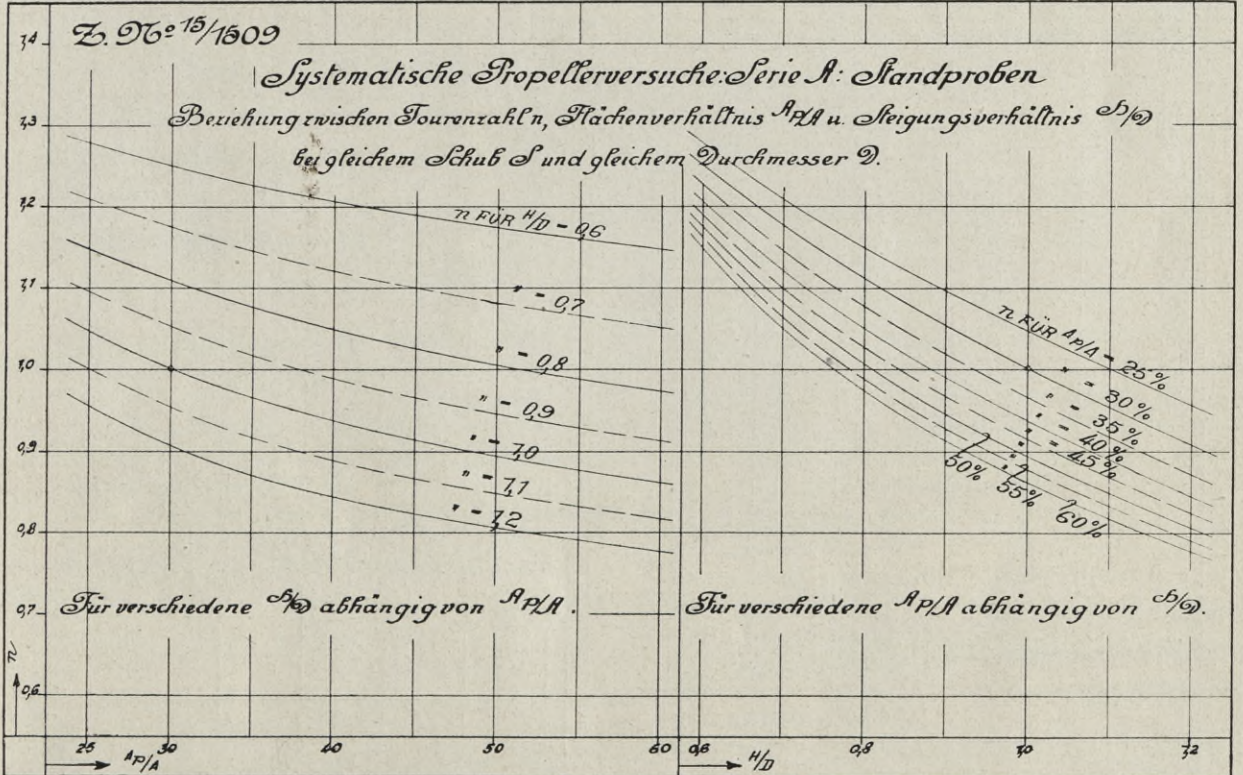 Z. No 15/1509
Systematische Propellerversuche: Serie A: Standproben
Beziehung zwischen Tourenzahl n, Flächenverhältnis AP/A u. Steigungsverhältnis H/D
bei gleichem Schub S und gleichem Durchmesser D.
1,4
1,3
1,2
1,1
1,0
0,9
0,8
0,7
0,6
n
n FÜR H/D = 0,6
" = 0,7
" = 0,8
" = 0,9
" = 1,0
" = 1,1
" = 1,2
Für verschiedene H/D abhängig von AP/A.
25 30 40 50 60
AP/A
n FÜR AP/A = 25%
" = 30%
" = 35%
" = 40%
" = 45%
50%
55%
60%
Für verschiedene AP/A abhängig von H/D.
0,6 0,8 1,0 1,2
H/D